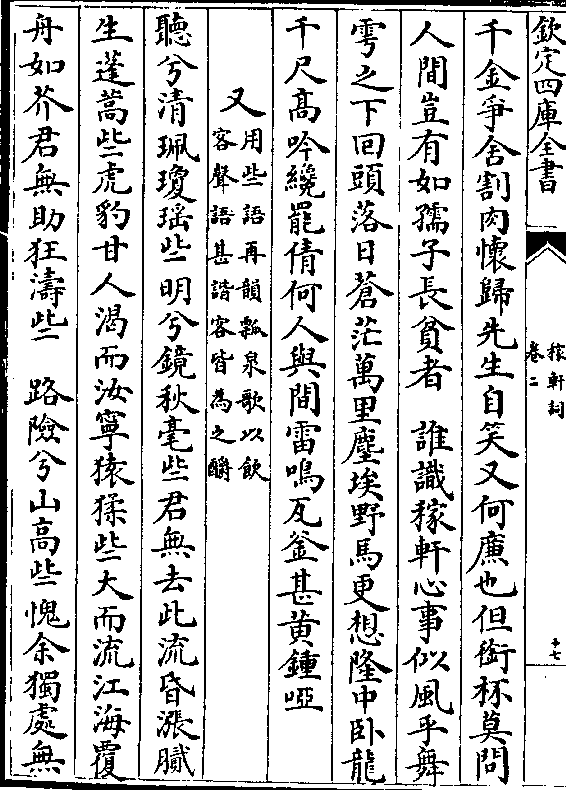 欽定四庫全書
稼軒詞
卷二
十七
千金爭舍割肉懷歸先生自笑又何廉也但銜杯莫問
人間豈有如孺子長貧者　誰識稼軒心事似風乎舞
雩之下回頭落日蒼茫萬里塵埃野馬更想隆中卧龍
千尺高吟纔罷倩何人與問雷鳴瓦釜甚黄鍾啞
又
用些語再韻瓢泉歌以飲
客聲語甚諧客皆為之釂
聽兮清珮瓊瑶些明兮鏡秋毫些君無去此流昏漲膩
生蓬蒿些虎豹甘人渴而汝寧猿猱些大而流江海覆
舟如芥君無助狂濤些　路險兮山高些愧余獨處無